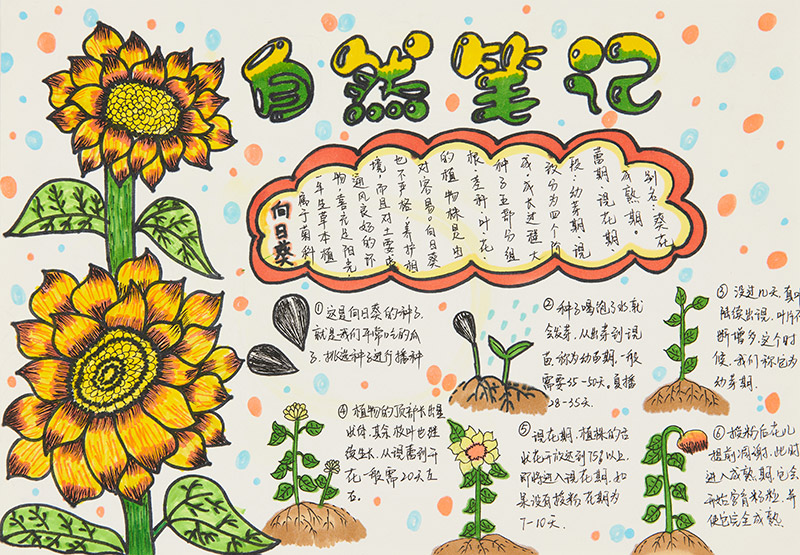 自然笔记
向日葵
属于菊科
一年生草本植
物，喜充足阳光，
通风良好的环
境，而且对土要求
也不严格，养护相
对容易。向日葵
的植物株是由
根、茎、叶、花、
种子五部分组
成，成长过程大
致分为四个阶
段：幼芽期、现
蕾期、现花期
成熟期。
别名：葵花
①这是向日葵的种子，
就是我们平常吃的瓜
子，挑选种子进行播种
②种子喝饱了水就
会发芽，从出芽到现
苗，称为幼苗期。一般
需要35-50天，夏播
28-35天.
③没过几天，真叶
陆续出现，叶片不
断增多，这个时
候，我们称它为
幼芽期.
④植物的顶部长出星
状体，其余枝叶也继
续生长，从现蕾到开
花一般需20天左
右.
⑤现花期，植株的舌
状花开放达到75%以上，
即将进入现花期，如
果没有授粉花期为
7-10天.
⑥授粉后花儿
提前凋谢，此时
进入成熟期，它会
开始孕育籽粒，并
使它完全成熟.